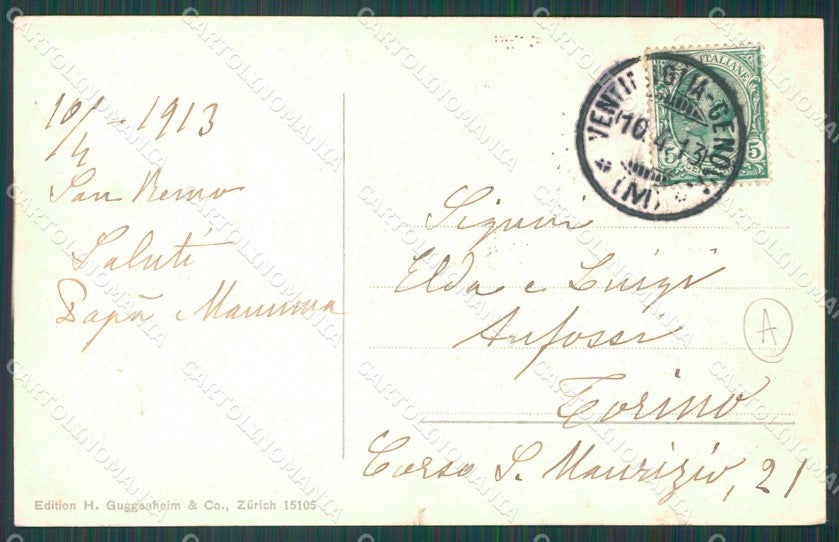 10/4 - 1913
San Remo
Saluti
Papà e Mamma
Signori
Elda e Luigi
Anfossi
Torino
Corso S. Maurizio, 21
A
VENTIMIGLIA-GENOVA
10.4.13
(M)
ITALIANE
5 5
Edition H. Guggenheim & Co., Zürich 15105
CARTOLINOMANIA